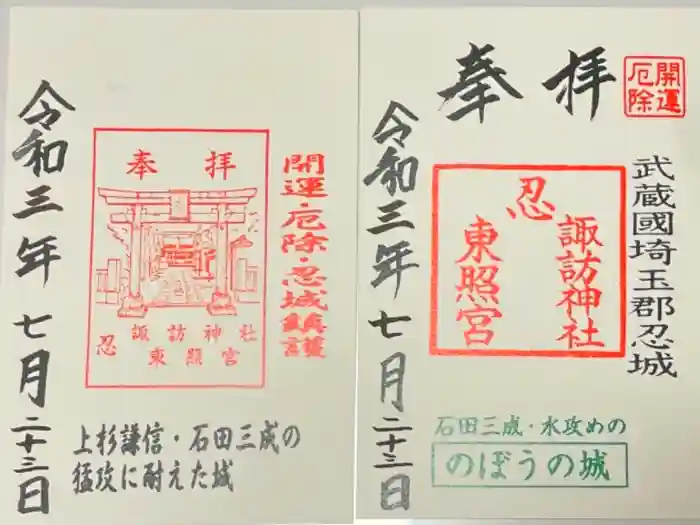 奉拝
開運・厄除・忍城鎮護
諏訪神社
忍東照宮
上杉謙信・石田三成の
猛攻に耐えた城
令和三年七月二十三日
開運
厄除
奉拝
武蔵國埼玉郡忍城
諏訪神社
忍
東照宮
令和三年七月二十三日
石田三成・水攻めの
のぼうの城